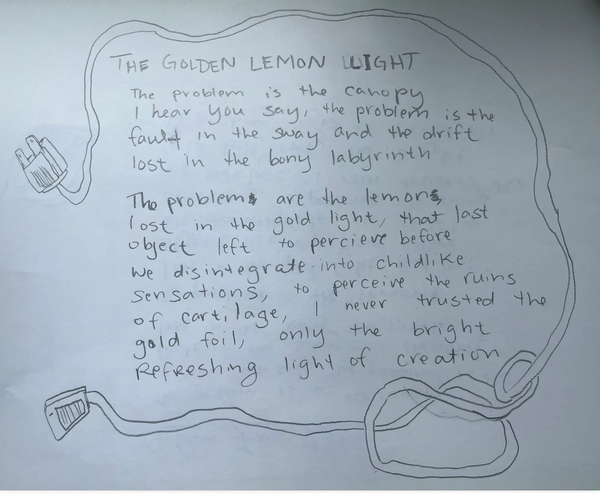 THE GOLDEN LEMON LIGHT
The problem is the canopy
I hear you say, the problem is the
fault in the sway and the drift
lost in the bony labyrinth
The problems are the lemons
lost in the gold light, that last
object left to percieve before
we disintegrate into childlike
sensations, to perceive the ruins
of cartilage, I never trusted the
gold foil, only the bright
Refreshing light of creation